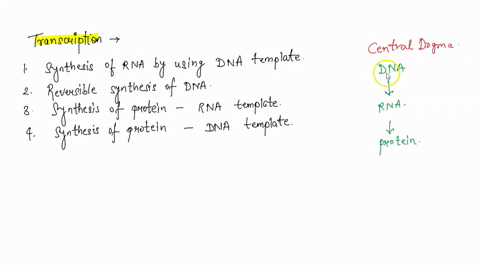 Transcription →
1. Synthesis of RNA by using DNA template.
2. Reversible synthesis of DNA.
3. Synthesis of protein – RNA template.
4. Synthesis of protein – DNA template.
Central Dogma.
DNA
↓
RNA.
↓
protein.